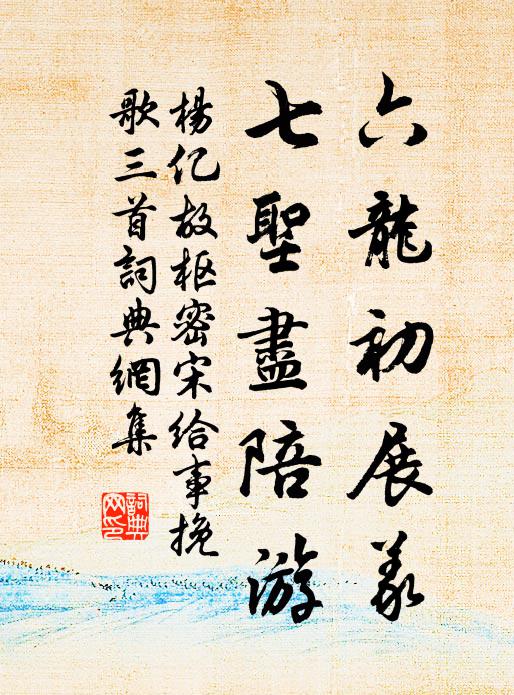 六龍初展義
七聖盡陪游
楊億故枢密宋给事挽
歌三首詞典網集
詞典網印